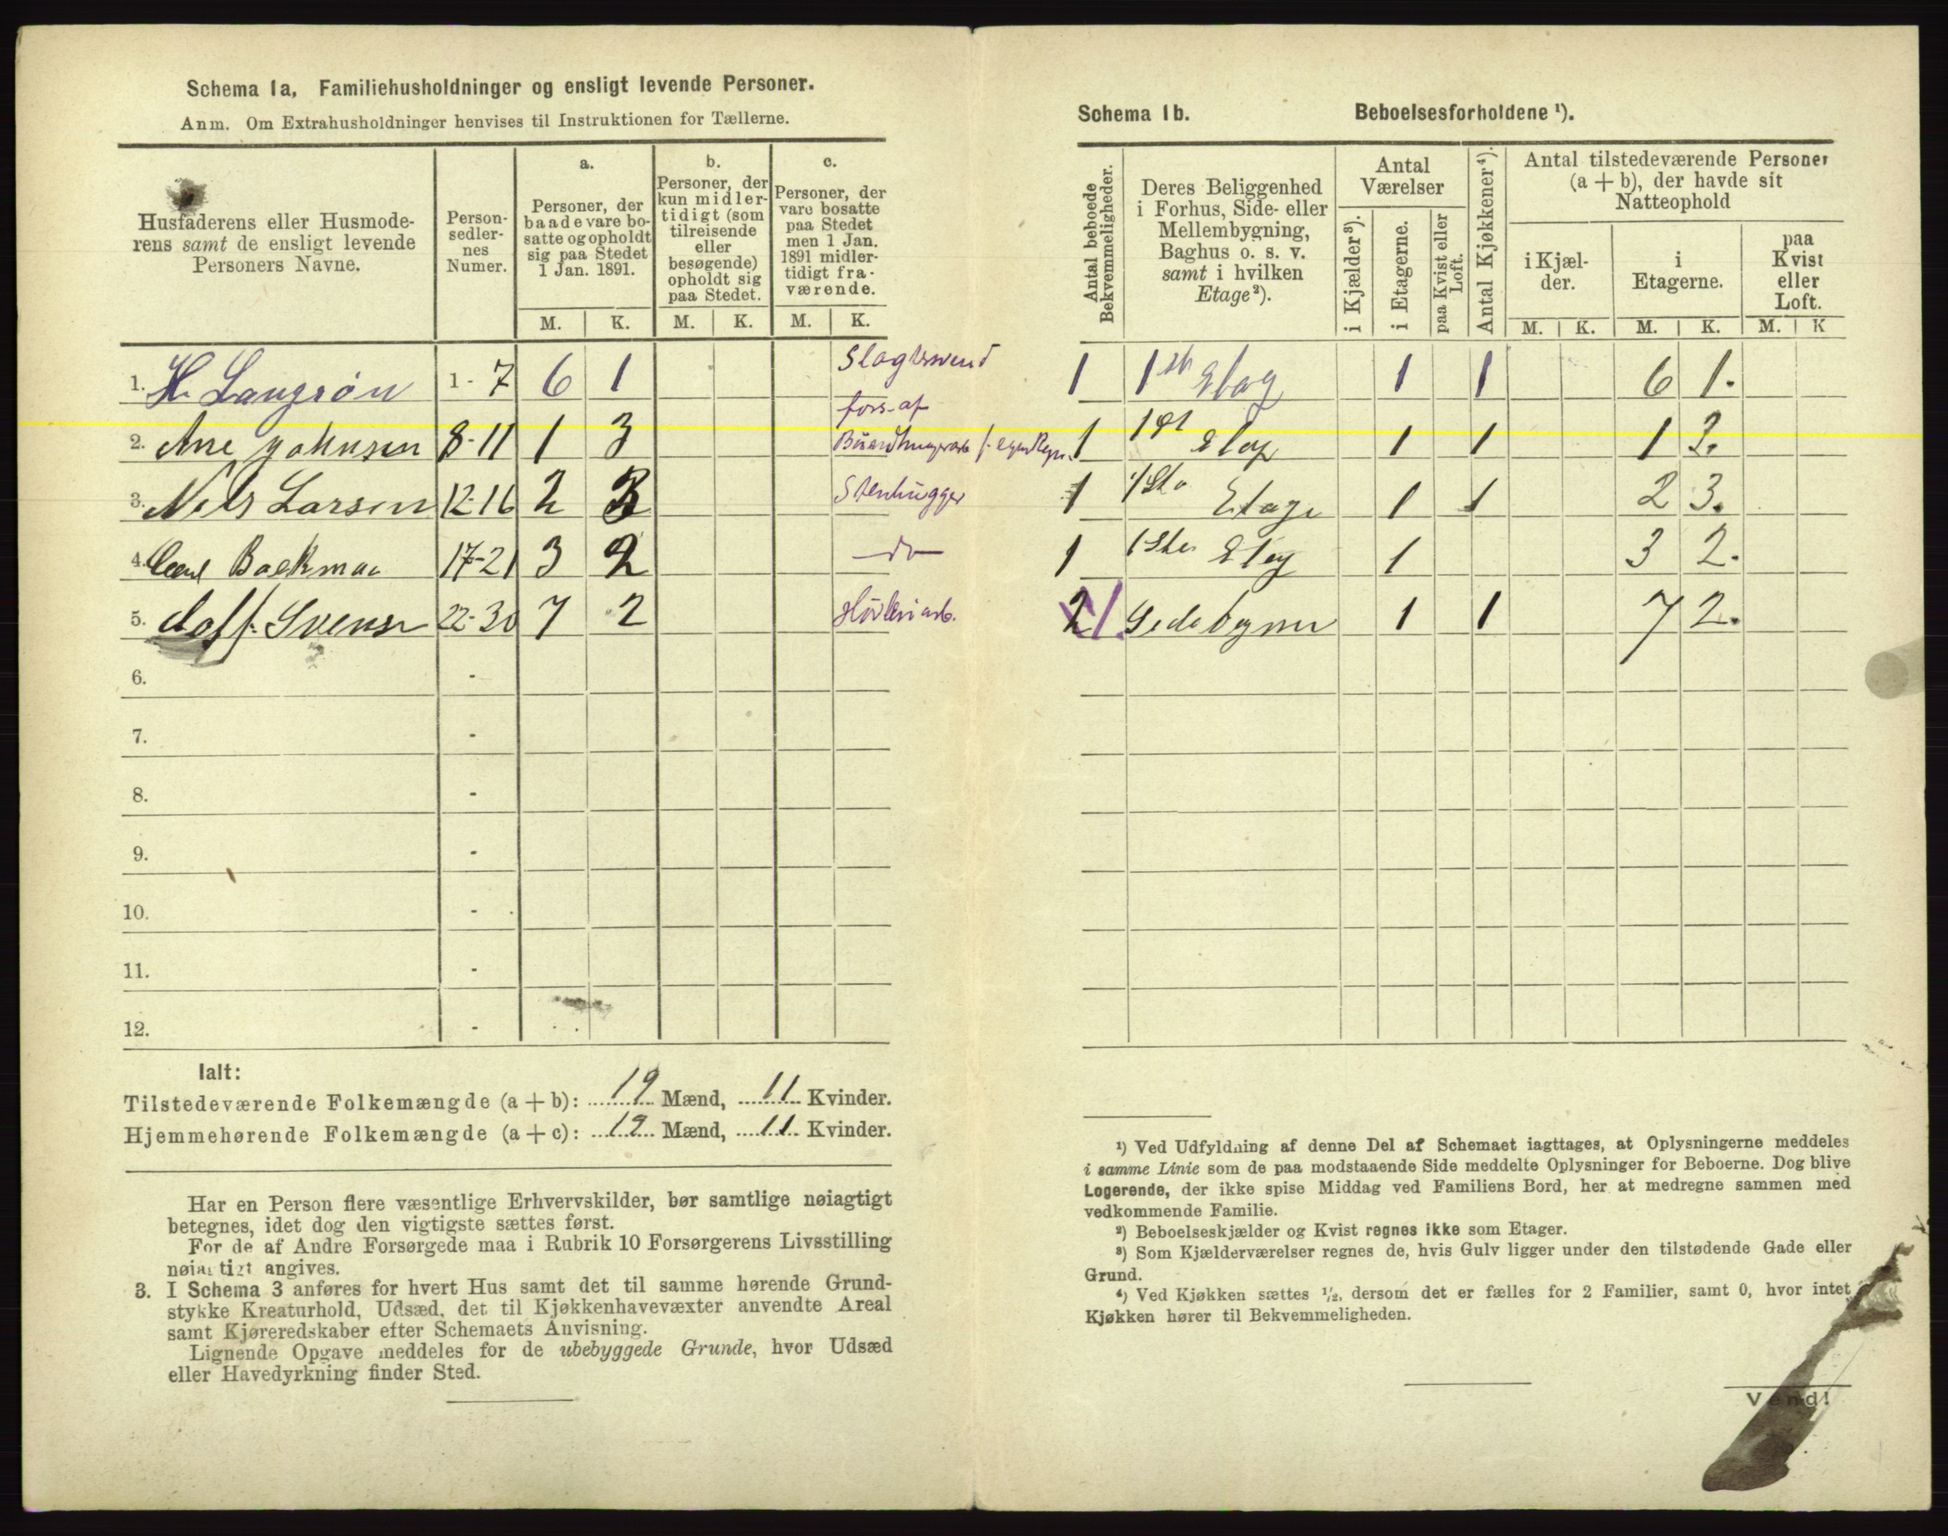 Schema 1a, Familiehusholdninger og ensligt levende Personer.
Anm. Om Extrahusholdninger henvises til Instruktionen for Tællerne.
Husfaderens eller Husmode-
rens samt de ensligt levende
Personers Navne.
Person-
sedler-
nes
Numer.
a.
Personer, der
baade vare bo-
satte og opholdt
sig paa Stedet
1 Jan. 1891.
b.
Personer, der
kun midler-
tidigt (som
tilreisende
eller
besøgende)
opholdt sig
paa Stedet.
c.
Personer, der
vare bosatte
paa Stedet
men 1 Jan.
1891 midler-
tidigt fra-
værende.
M. K. M. K. M. K.
1. H. Langrön 1-7 6 1 Slagtersvend
fors. af
2. Ane Johnsen 8-11 1 3
3. Nils Larsen 12-16 2 3 Stenhugger
4. Carl Backman 17-21 3 2 do
5. Svensen 22-30 7 2 Høvleriarb.
6. -
7. -
8. -
9. -
10. -
11. -
12. -
Ialt:
Tilstedeværende Folkemængde (a + b): 19 Mænd, 11 Kvinder.
Hjemmehørende Folkemængde (a + c): 19 Mænd, 11 Kvinder.
Har en Person flere væsentlige Erhvervskilder, bør samtlige nøiagtigt
betegnes, idet dog den vigtigste sættes først.
For de af Andre Forsørgede maa i Rubrik 10 Forsørgerens Livsstilling
nøiagtigt angives.
3. I Schema 3 anføres for hvert Hus samt det til samme hørende Grund-
stykke Kreaturhold, Udsæd, det til Kjøkkenhavevæxter anvendte Areal
samt Kjøreredskaber efter Schemaets Anvisning.
Lignende Opgave meddeles for de ubebyggede Grunde, hvor Udsæd
eller Havedyrkning finder Sted.
Schema 1b. Beboelsesforholdene ¹).
Antal beboede
Bekvemmeligheder.
Deres Beliggenhed
i Forhus, Side- eller
Mellembygning,
Baghus o. s. v.
samt i hvilken
Etage²).
Antal
Værelser
i Kjælder³).
i Etagerne.
paa Kvist eller
Loft.
Antal Kjøkkener⁴).
Antal tilstedeværende Personer
(a + b), der havde sit
Natteophold
i Kjæl-
der.
i
Etagerne.
paa
Kvist
eller
Loft.
M. K. M. K. M. K
1 1ste Etag 1 1 6 1.
1 1st Etag 1 1 1 3.
1 1ste Etage 1 1 2 3.
1 1ste Etag 1 3 2.
1. Sidebygning 1 1 7 2.
¹) Ved Udfyldning af denne Del af Schemaet iagttages, at Oplysningerne meddeles
i samme Linie som de paa modstaaende Side meddelte Oplysninger for Beboerne. Dog blive
Logerende, der ikke spise Middag ved Familiens Bord, her at medregne sammen med
vedkommende Familie.
²) Beboelseskjælder og Kvist regnes ikke som Etager.
³) Som Kjælderværelser regnes de, hvis Gulv ligger under den tilstødende Gade eller
Grund.
⁴) Ved Kjøkken sættes ½, dersom det er fælles for 2 Familier, samt 0, hvor intet
Kjøkken hører til Bekvemmeligheden.
Vend!